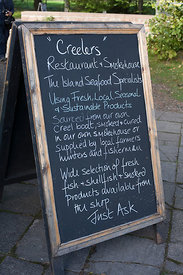 "Creelers"
Restaurant + Smokehouse
The Island Seafood Specialists
Using Fresh, Local Seasonal
& Sustainable Products
Sourced from our own
Creel boat, smoked & cured
in our own smokehouse or
supplied by local farmers
hunters and fishermen
Wide selection of fresh
fish & shellfish & smoked
Products available from
the shop
Just Ask